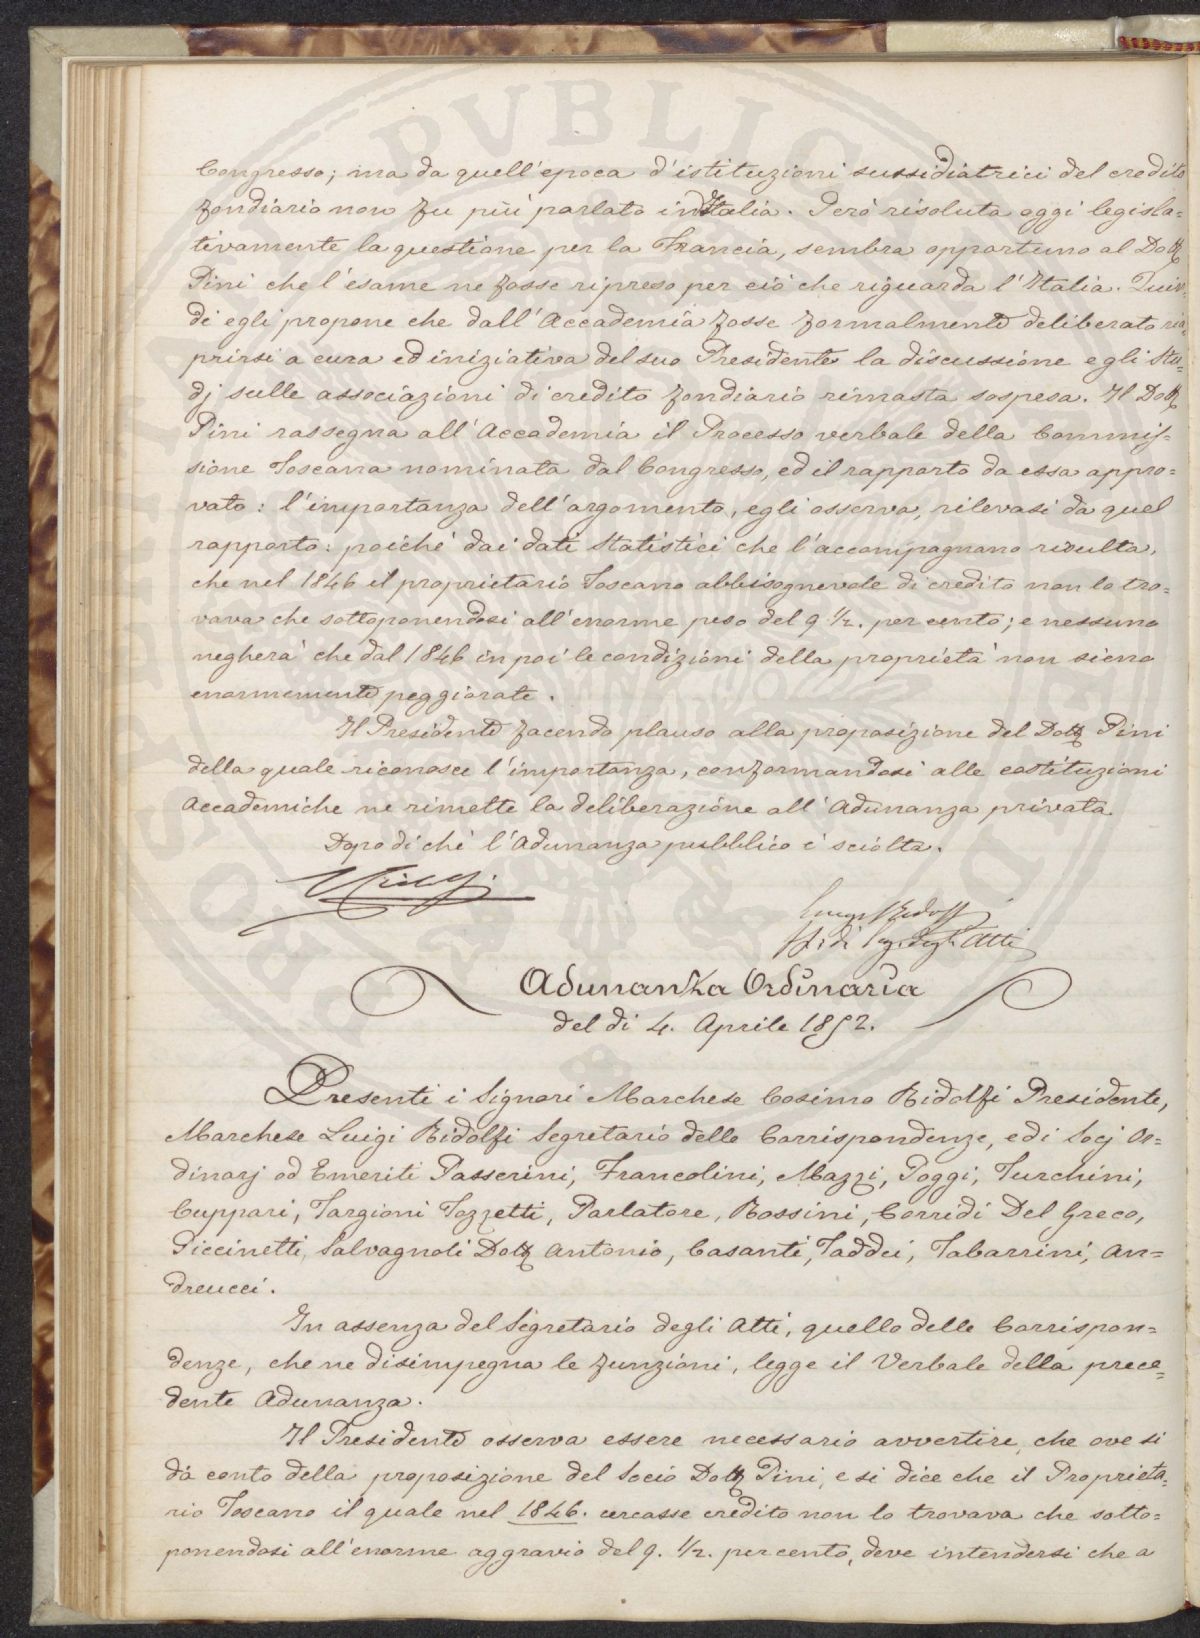 Congresso; ma da quell'epoca d'istituzioni sussidiatrici del credito
fondiario non fu più parlato in Italia. Però risoluta oggi legisla=
tivamente la questione per la Francia, sembra opportuno al Dott
Pini che l'esame ne fosse ripreso per ciò che riguarda l'Italia. Quin=
di egli propone che dall'Accademia fosse formalmente deliberato ria=
prirsi a cura ed iniziativa del suo Presidente la discussione e gli Stu=
dj sulle associazioni di credito fondiario rimasta sospesa. Il Dott
Pini rassegna all'Accademia il Processo verbale della Commis=
sione Toscana nominata dal Congresso, ed il rapporto da essa appro=
vato: l'importanza dell'argomento, egli osserva, rilevasi da quel
rapporto: poiché dai dati Statistici che l'accompagnano risulta,
che nel 1846 il proprietario Toscano abbisognevole di credito non lo tro=
vava che sottoponendosi all'enorme peso del 9 1/2. per cento; e nessuno
negherà che dal 1846 in poi le condizioni della proprietà non sieno
enormemente peggiorate.
Il Presidente facendo plauso alla proposizione del Dott Pini
della quale riconosce l'importanza, conformandosi alle costituzioni
Accademiche ne rimette la deliberazione all'Adunanza privata
Dopo di chè l'Adunanza pubblico è sciolta.
degli Atti
Adunanza Ordinaria
del di 4. Aprile 1852.
Presenti i Signori Marchese Cosimo Ridolfi Presidente,
Marchese Luigi Ridolfi Segretario delle Corrispondenze, ed i Socj Or=
dinarj od Emeriti Passerini, Francolini, Mazzi, Poggi, Turchini,
Cuppari, Targioni Tozzetti, Parlatore, Rossini, Corridi Del Greco,
Piccinetti, Salvagnoli Dott Antonio, Casanti, Taddei, Tabarrini, An=
dreucci.
In assenza del Segretario degli Atti, quello delle Corrispon=
denze, che ne disimpegna le funzioni, legge il Verbale della prece=
dente Adunanza.
Il Presidente osserva essere necessario avvertire, che ove si
dà conto della proposizione del Socio Dott Pini, e si dice che il Proprieta=
rio Toscano il quale nel 1846. cercasse credito non lo trovava che sotto=
ponendosi all'enorme aggravio del 9. 1/2. per cento, deve intendersi che a
PUBLIC